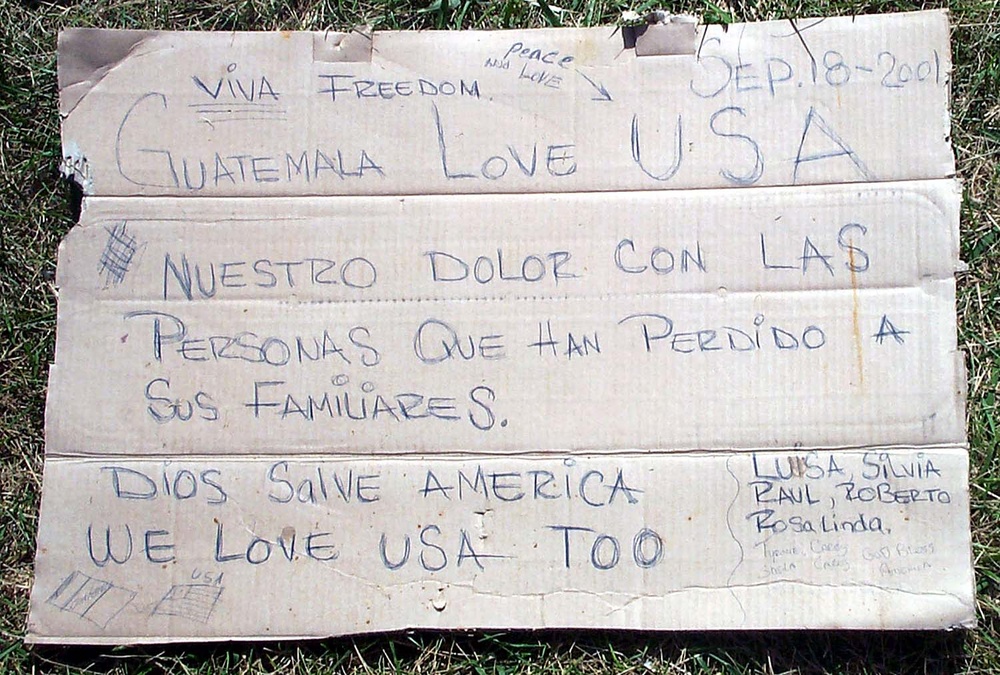 Peace
AND LOVE
SEP. 18-2001
ViVA FREEDOM.
GUATEMALA LOVE USA
NUESTRO DOLOR CON LAS
PERSONAS QUE HAN PERDiDO A
SUS FAMiLiARES.
DiOS SalVE AMERiCA
WE LOVE USA TOO
USA
LUiSA, SiLViA
RAUL, ROBERTO
Rosalinda.
God Bless
America